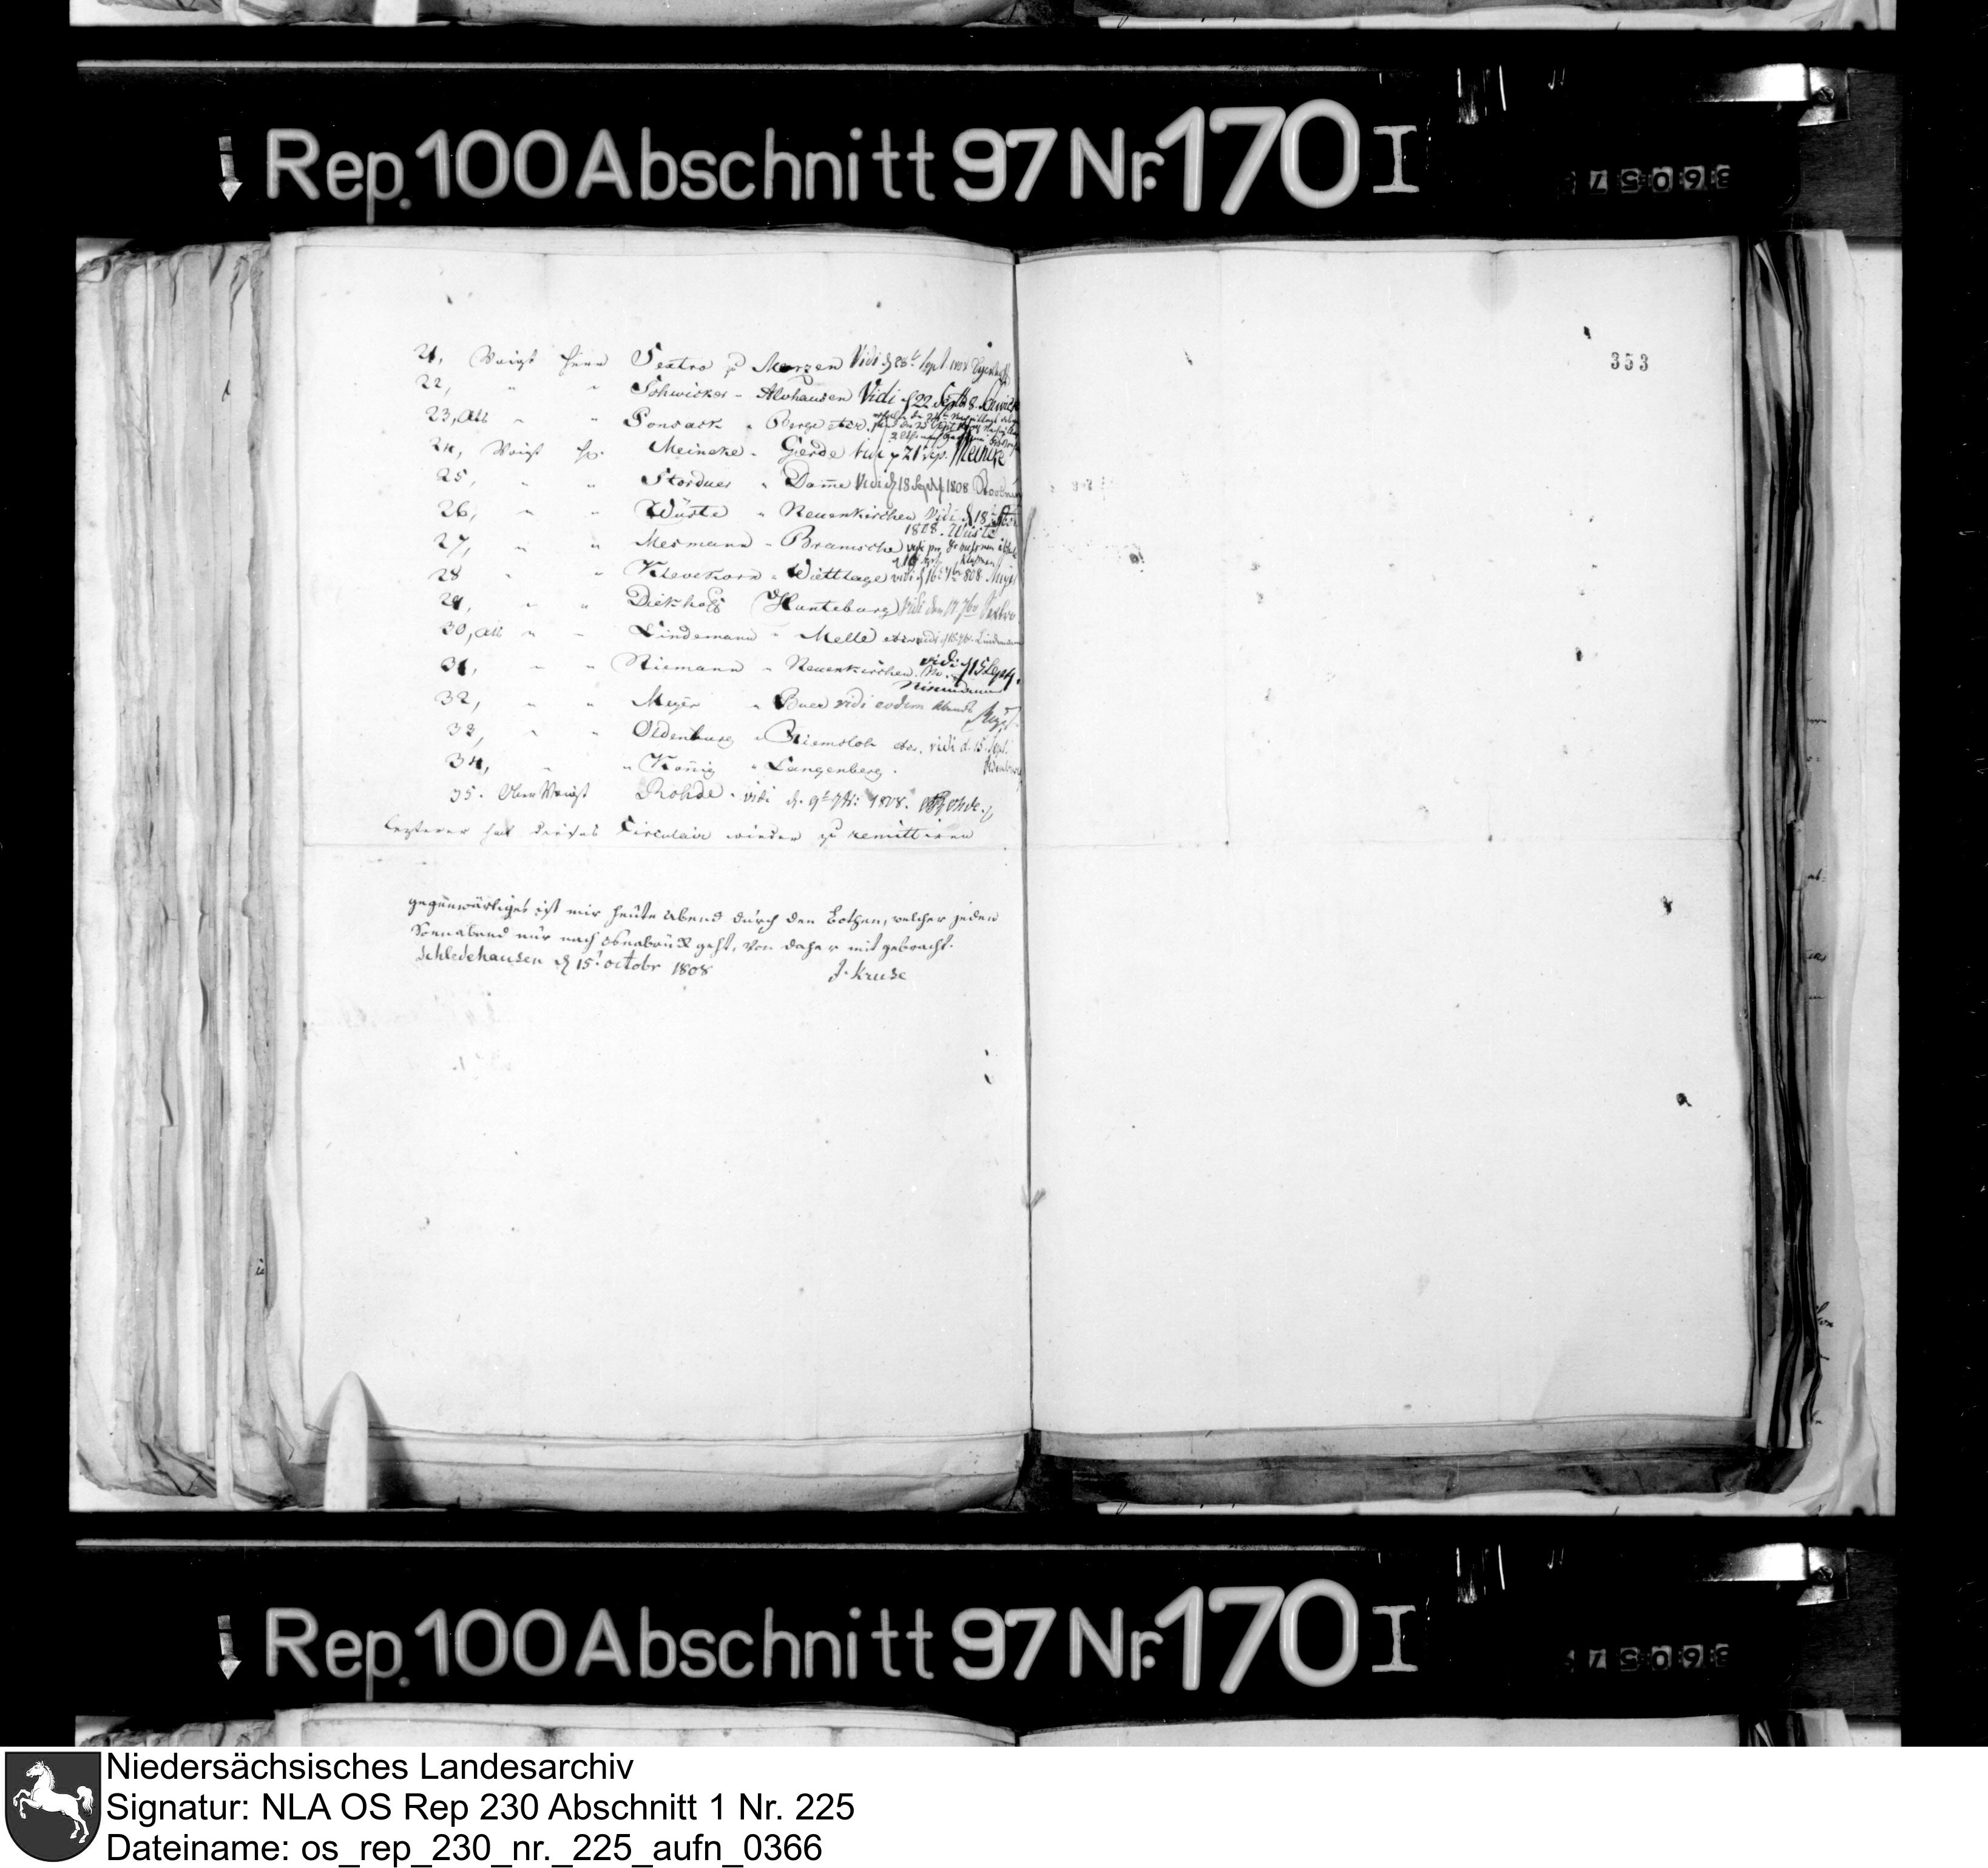 Rep. 100 Abschnitt 97 Nr. 170 I
36057
353
21, Voigt Herrn Sextro zu Merzen Vidi d 26t Sept. 1808
22, " " Schwicker - Alvhausen Vidi d 22 Sept 8.
23, " " Ponsack " Berge etc.
24, Voigt H. Meineke - Gerde Vidi d 21 Sep. Meineke
25, " " Stordeur " Damme Vidi d 18 Sept 1808
26, " " Wüste " Neuenkirchen Vidi d 18
1808. Wüste
27, " " Mesmann - Bramsche
28 " " Klevekorn " Wittlage vidi d 16t 7br 808.
29, " " Diekhoff (Hunteburg) Vidi den 17. 7br Sextro
30, " - Lindemann " Melle etc vidi Lindemann
31, " " Niemann " Neuenkirchen. vidi d 15 Sept.
Niemann
32, " " Meyer " Buer vidi eodem Abends
Meyer
33, " " Oldenburg " Riemsloh etc. vidi d. 15. Sept.
34, " " König " Langenberg.
35. Ober Voigt Rohde. vidi d. 9t 7br: 1808. Rohde.
letzterer hat dieses Circulair wieder zu remittiren
gegenwärtiges ist mir heute Abend durch den Bothen, welcher jeden
Sonnabend nur nach Osnabrück geht, von daher mit gebracht.
Schledehausen d 15t octobr 1808 J. Kruse
Rep. 100 Abschnitt 97 Nr. 170 I
36057
Niedersächsisches Landesarchiv
Signatur: NLA OS Rep 230 Abschnitt 1 Nr. 225
Dateiname: os_rep_230_nr._225_aufn_0366